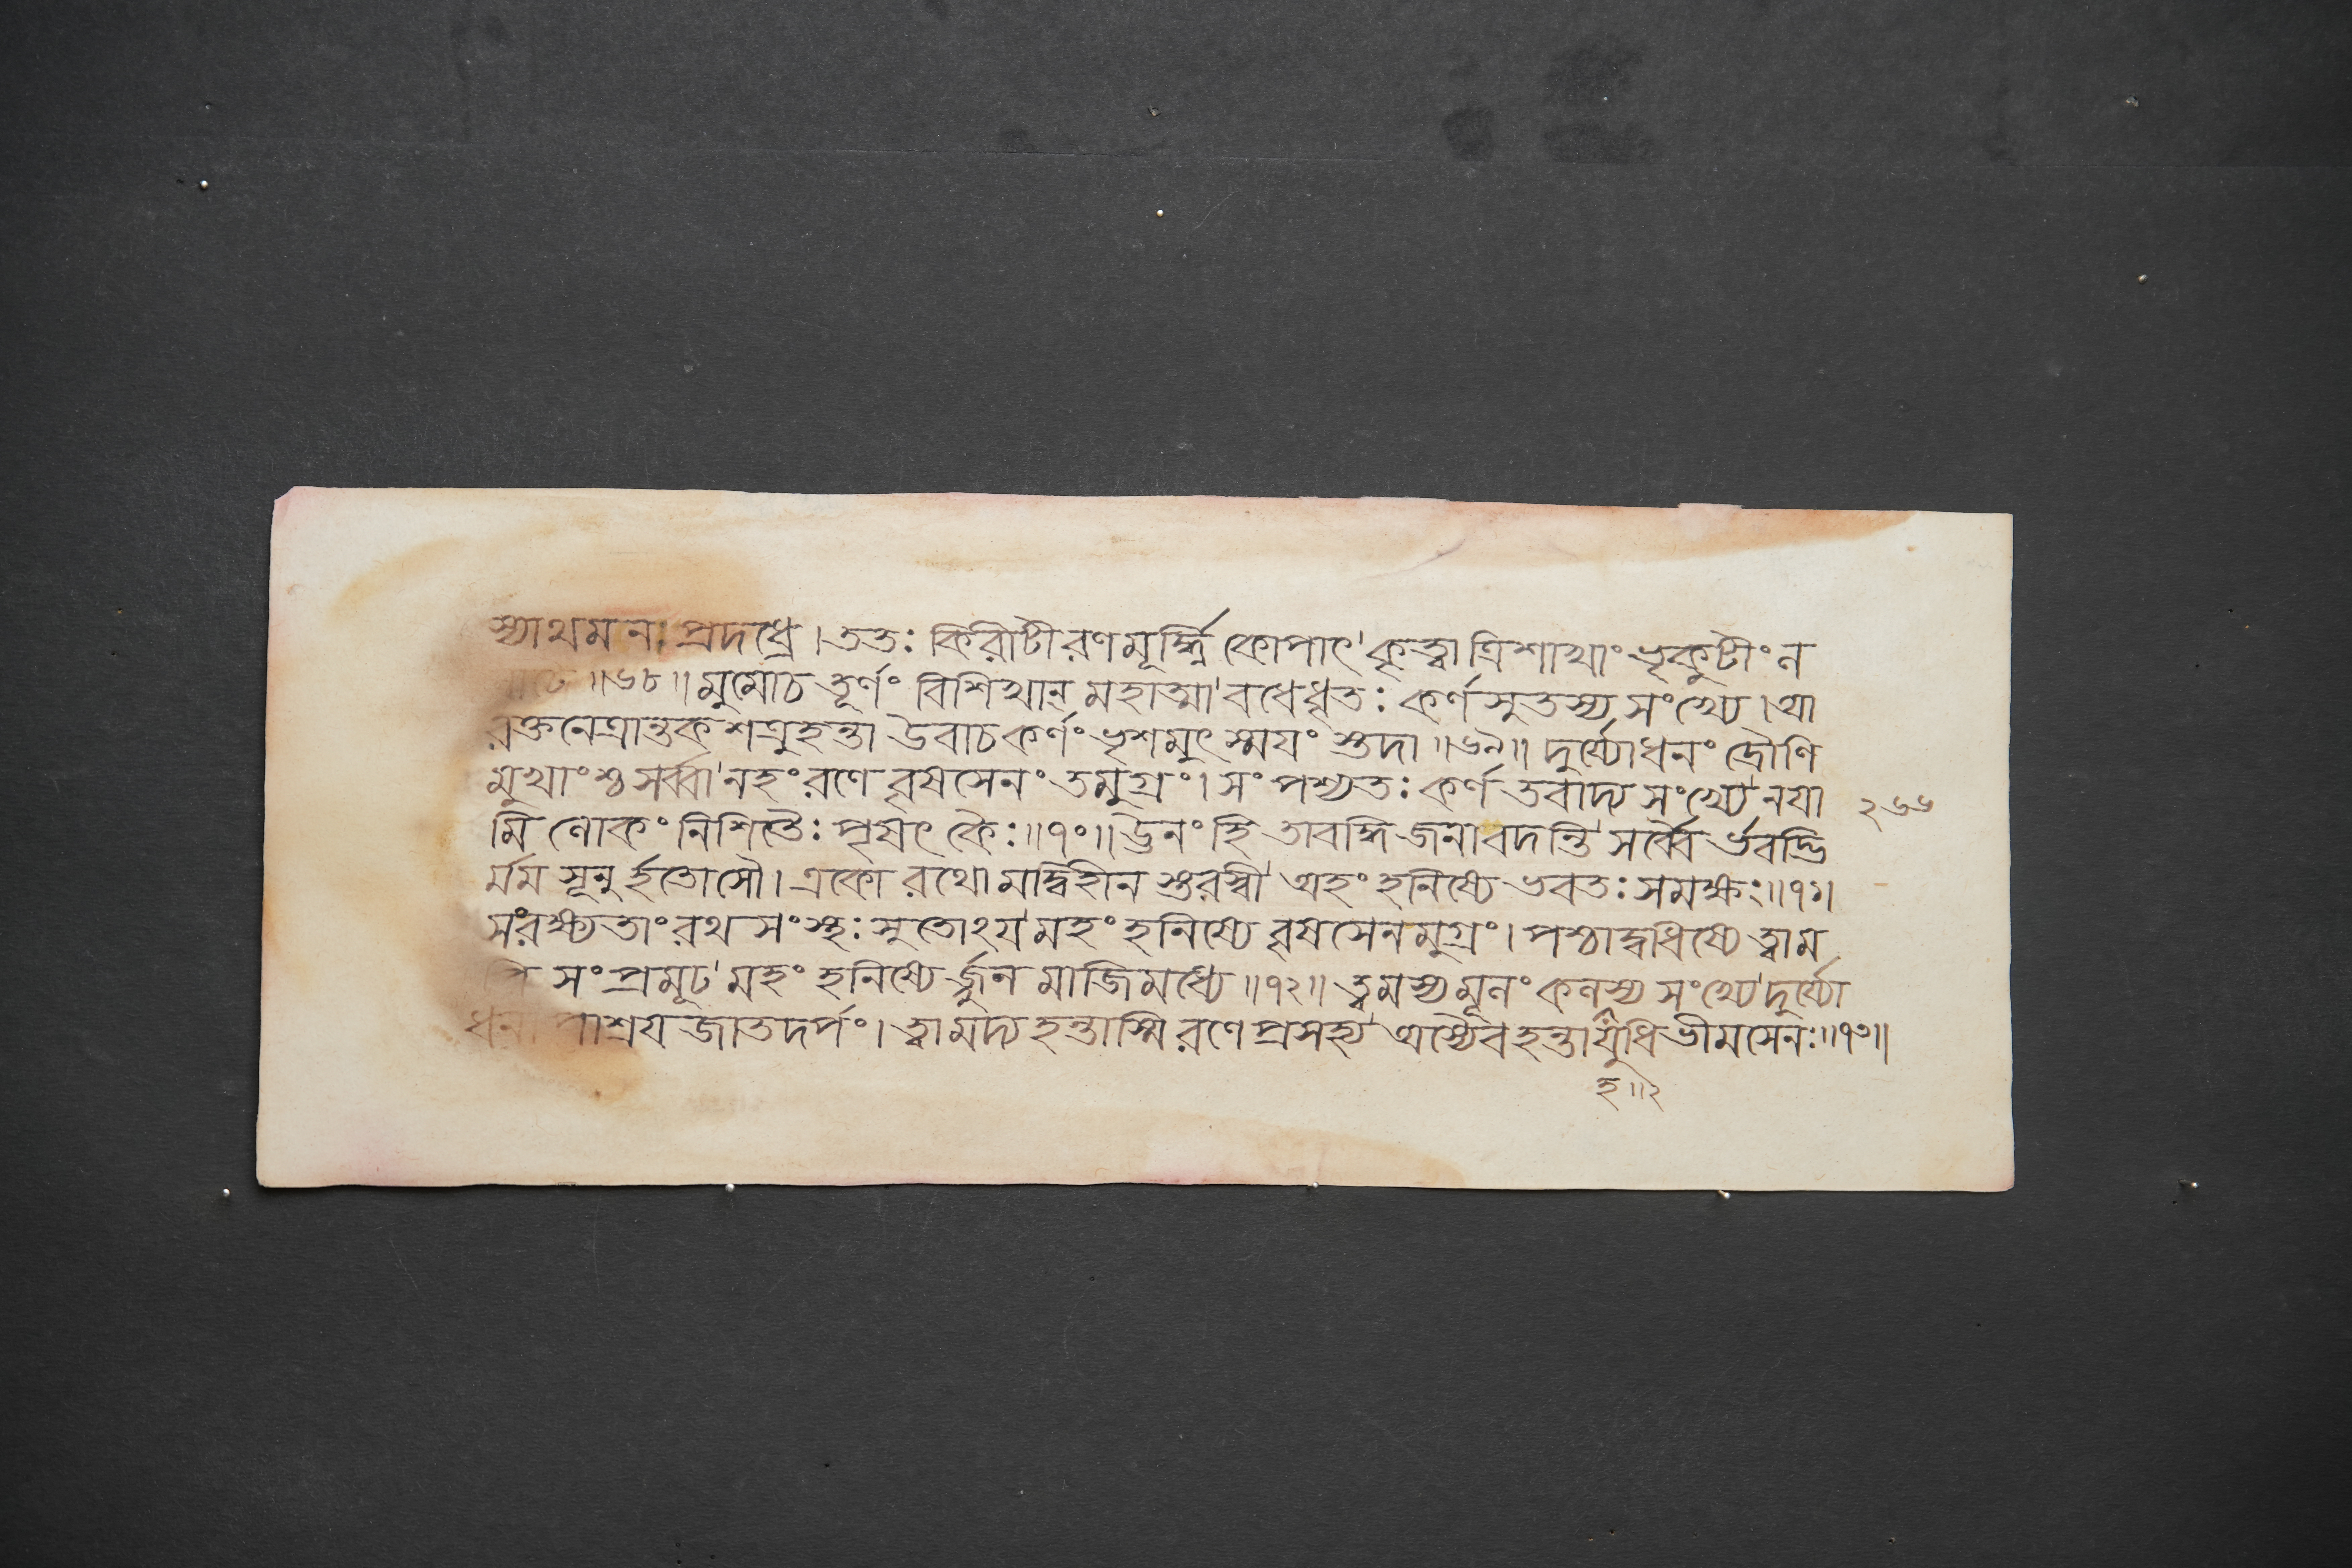 স্যাথমনঃ প্রদধ্রে।ততঃ কিরীটী রণমূর্দ্ধ্নি কোপাৎ কৃত্বা ত্রিশাখাং ভৃকুটীং ন
॥৬৮॥ মুমোচ তূর্ণং বিশিখান্ মহাত্মা বধেধৃতঃ কর্ণসুতস্য সংখ্যে।আ
রক্তনেত্রান্তক শত্রুহন্তা উবাচ কর্ণং ভৃশমুৎস্ময়ং স্তদা॥৬৯॥ দুর্য্যোধনং দ্রৌণি
মুখাংশ্চ সর্ব্বানহং রণে বৃষসেনং তমুগ্রং। সংপশ্যতঃ কর্ণ তবাদ্য সংখ্যে নয়া
মি লোকং নিশিতৈঃ পৃষৎকৈঃ॥৭০॥ ঊনং হি তাবদ্ধি জনা বদন্তি সর্ব্বৈর্ভবদ্ভি
র্মম সূনুর্হতোসৌ। একো রথো মদ্বিহীন স্তরস্বী অহং হনিষ্যে ভবতঃ সমক্ষং॥৭১॥
সংরক্ষ্যতাং রথসংস্থঃ সুতোঽয়মহং হনিষ্যে বৃষসেনমুগ্রং। পশ্চাদ্বধিষ্যে ত্বাম
পি সংপ্রমূঢমহং হনিষ্যের্জুন মাজিমধ্যে॥৭২॥ ত্বমস্য মূলং কলহস্য সংখ্যে দুর্য্যো
ধনাপাশ্রয় জাতদর্পং। ত্বামদ্য হন্তাস্মি রণে প্রসহ্য অস্যৈব হন্তা যুধি ভীমসেনঃ॥৭৩॥
হ॥২
২৬৬